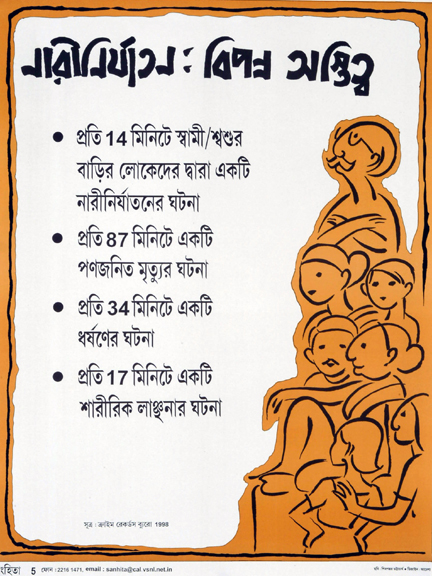 নারীনির্যাতন : বিপন্ন অস্তিত্ব
● প্রতি 14 মিনিটে স্বামী/শ্বশুর
বাড়ির লোকেদের দ্বারা একটি
নারীনির্যাতনের ঘটনা
● প্রতি 87 মিনিটে একটি
পণজনিত মৃত্যুর ঘটনা
● প্রতি 34 মিনিটে একটি
ধর্ষণের ঘটনা
● প্রতি 17 মিনিটে একটি
শারীরিক লাঞ্ছনার ঘটনা
সূত্র : ক্রাইম রেকর্ডস ব্যুরো 1998
ংহিতা 5 ফোন : 2216 1471, email : sanhita@cal.vsnl.net.in